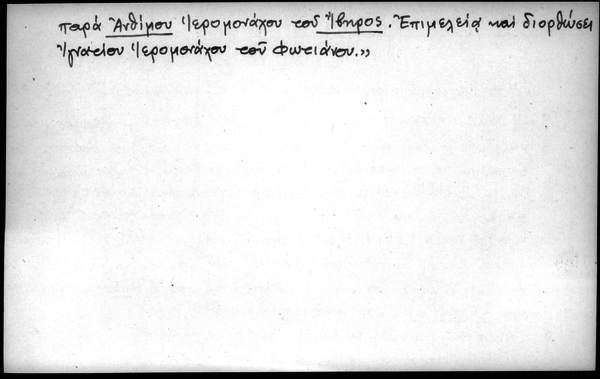 παρά Ἀνθίμου Ἱερομονάχου τοῦ Ἴβηρος. Ἐπιμελείᾳ καί διορθώσει
Ἰγνατίου Ἱερομονάχου τοῦ Φωτιάνου.»